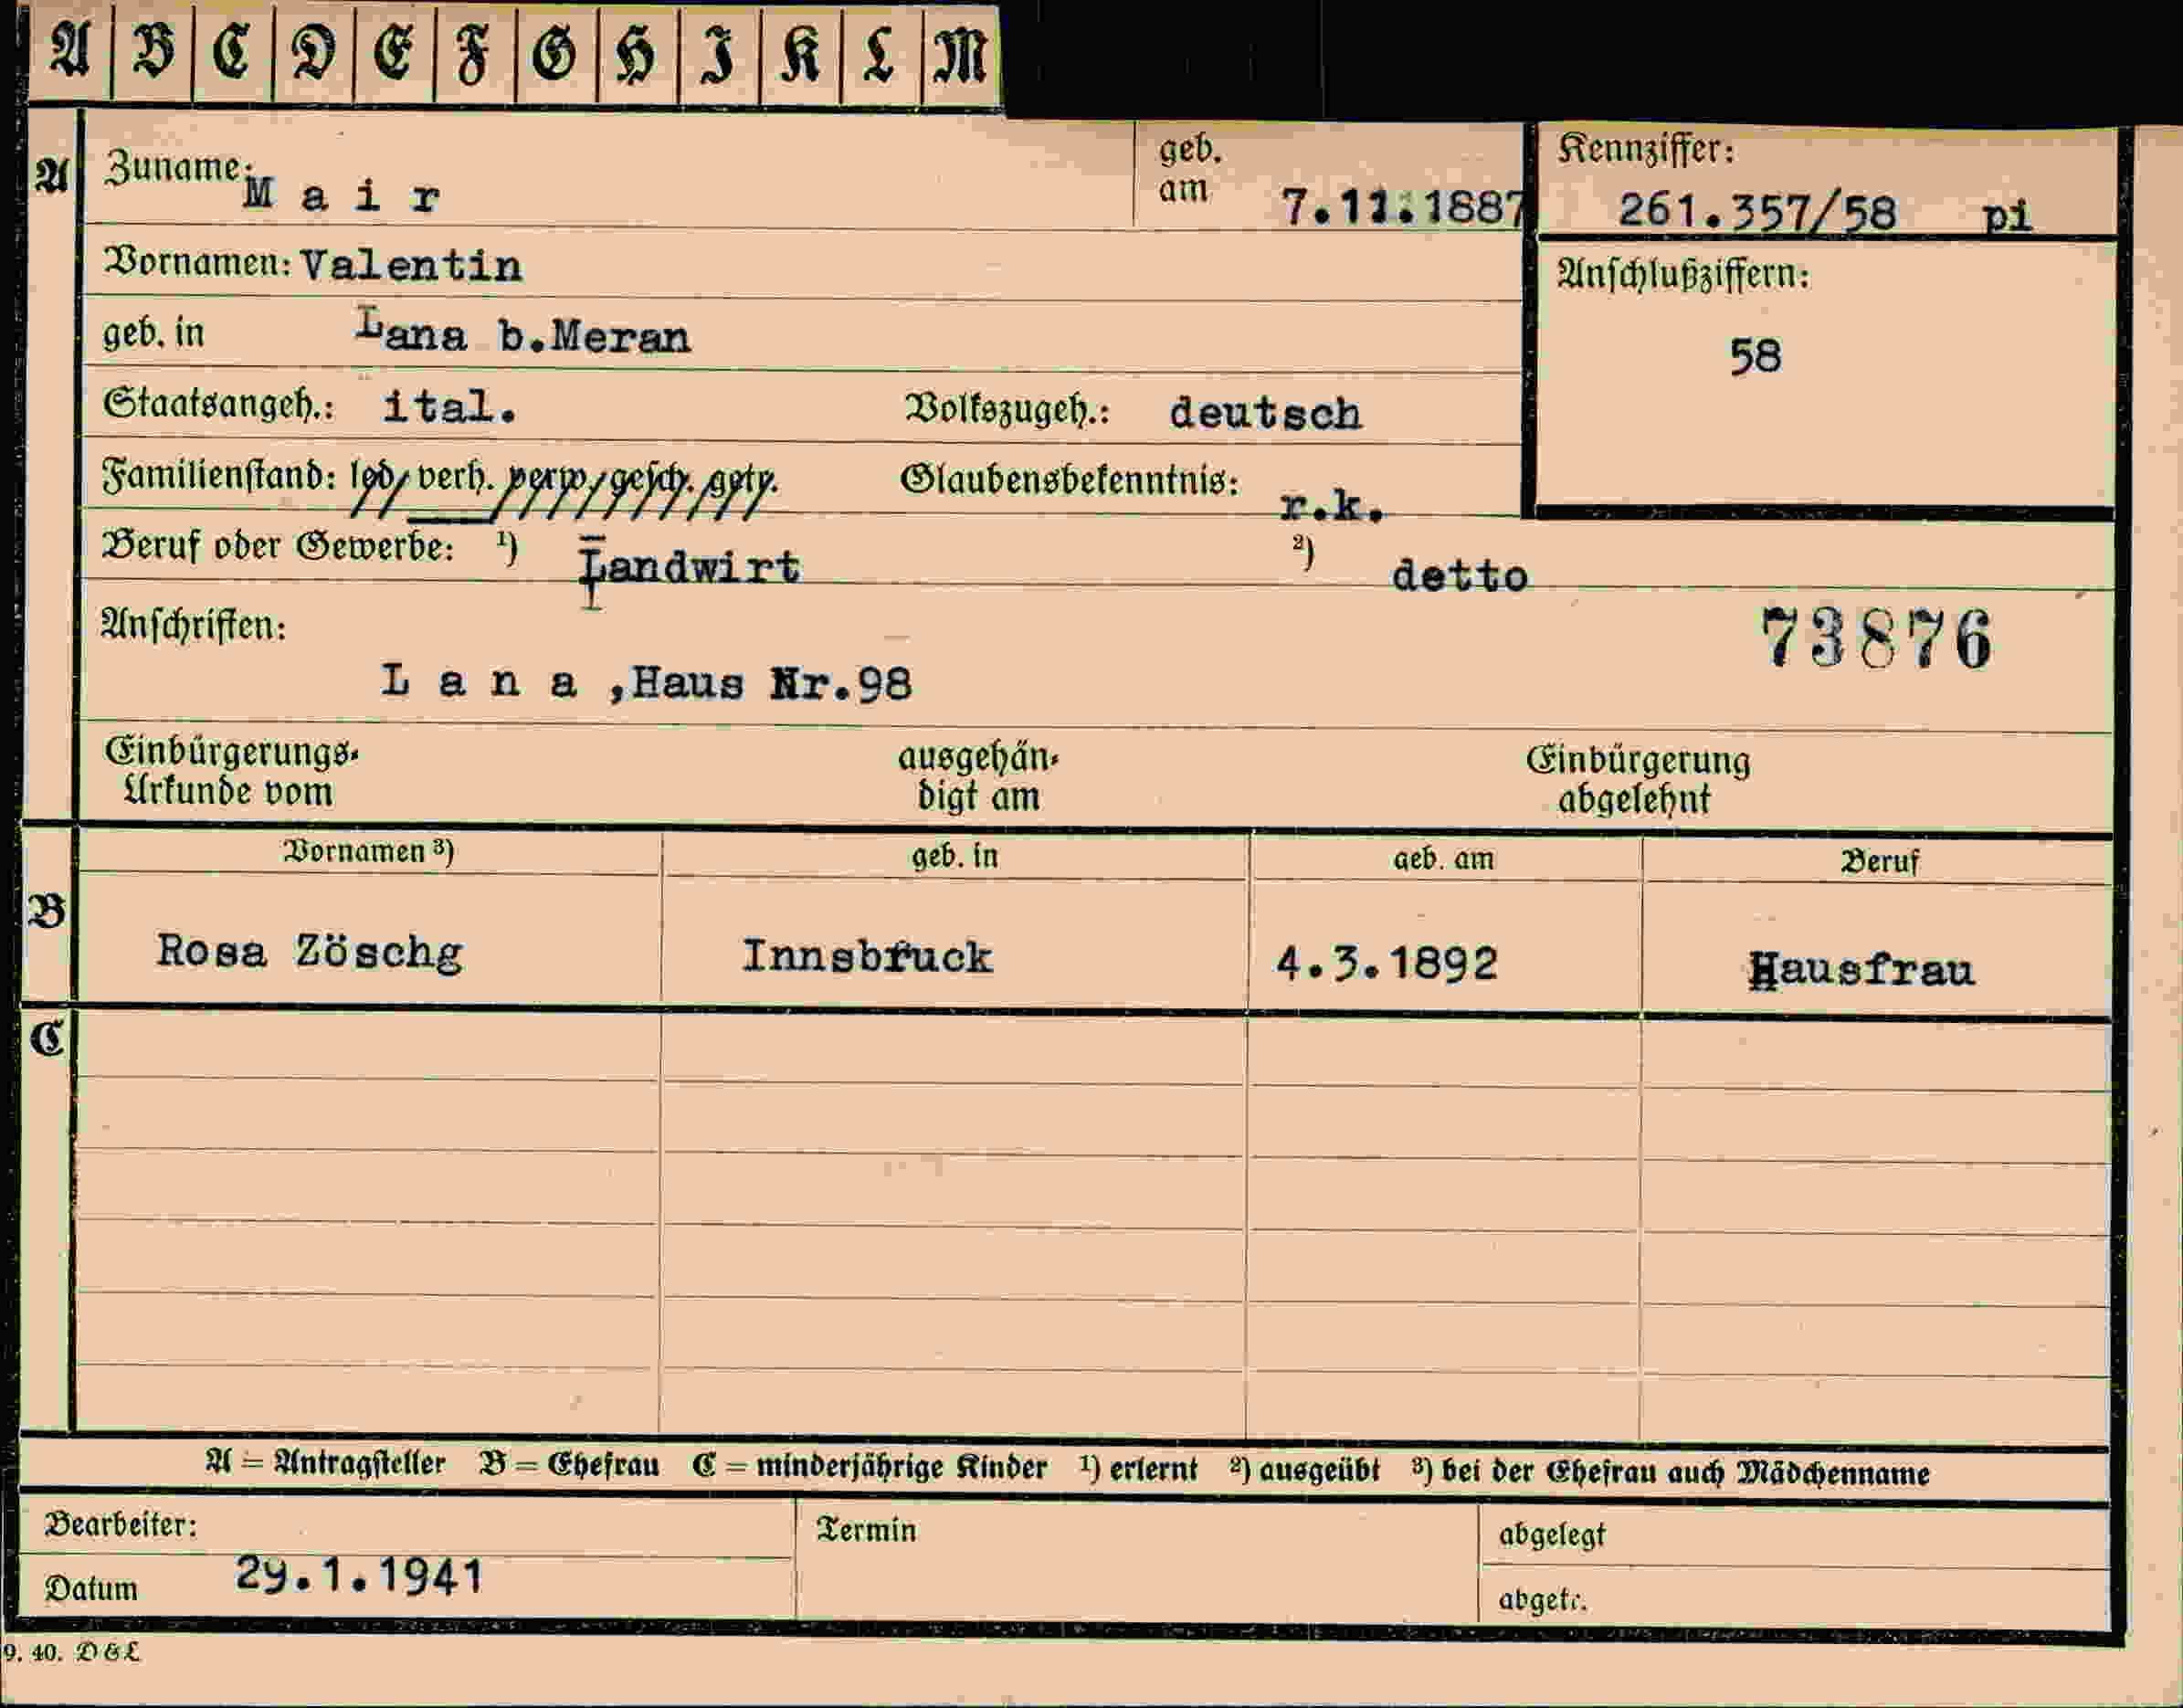 A B C D E F G H I K L M
A Zuname: Mair geb. am 7.11.1887 Kennziffer: 261.357/58 pi
Vornamen: Valentin Anschlußziffern:
geb. in Lana b.Meran 58
Staatsangeh.: ital. Volkszugeh.: deutsch
Familienstand: led. verh. verw. gesch. getr. Glaubensbekenntnis: r.k.
Beruf oder Gewerbe: ¹) Landwirt ²) detto
Anschriften: 73876
Lana,Haus Nr.98
Einbürgerungs- ausgehän- Einbürgerung
Urkunde vom digt am abgelehnt
Vornamen ³) geb. in geb. am Beruf
B Rosa Zöschg Innsbruck 4.3.1892 Hausfrau
C
A = Antragsteller B = Ehefrau C = minderjährige Kinder ¹) erlernt ²) ausgeübt ³) bei der Ehefrau auch Mädchenname
Bearbeiter: Termin abgelegt
Datum 29.1.1941 abgetr.
9. 40. D & L